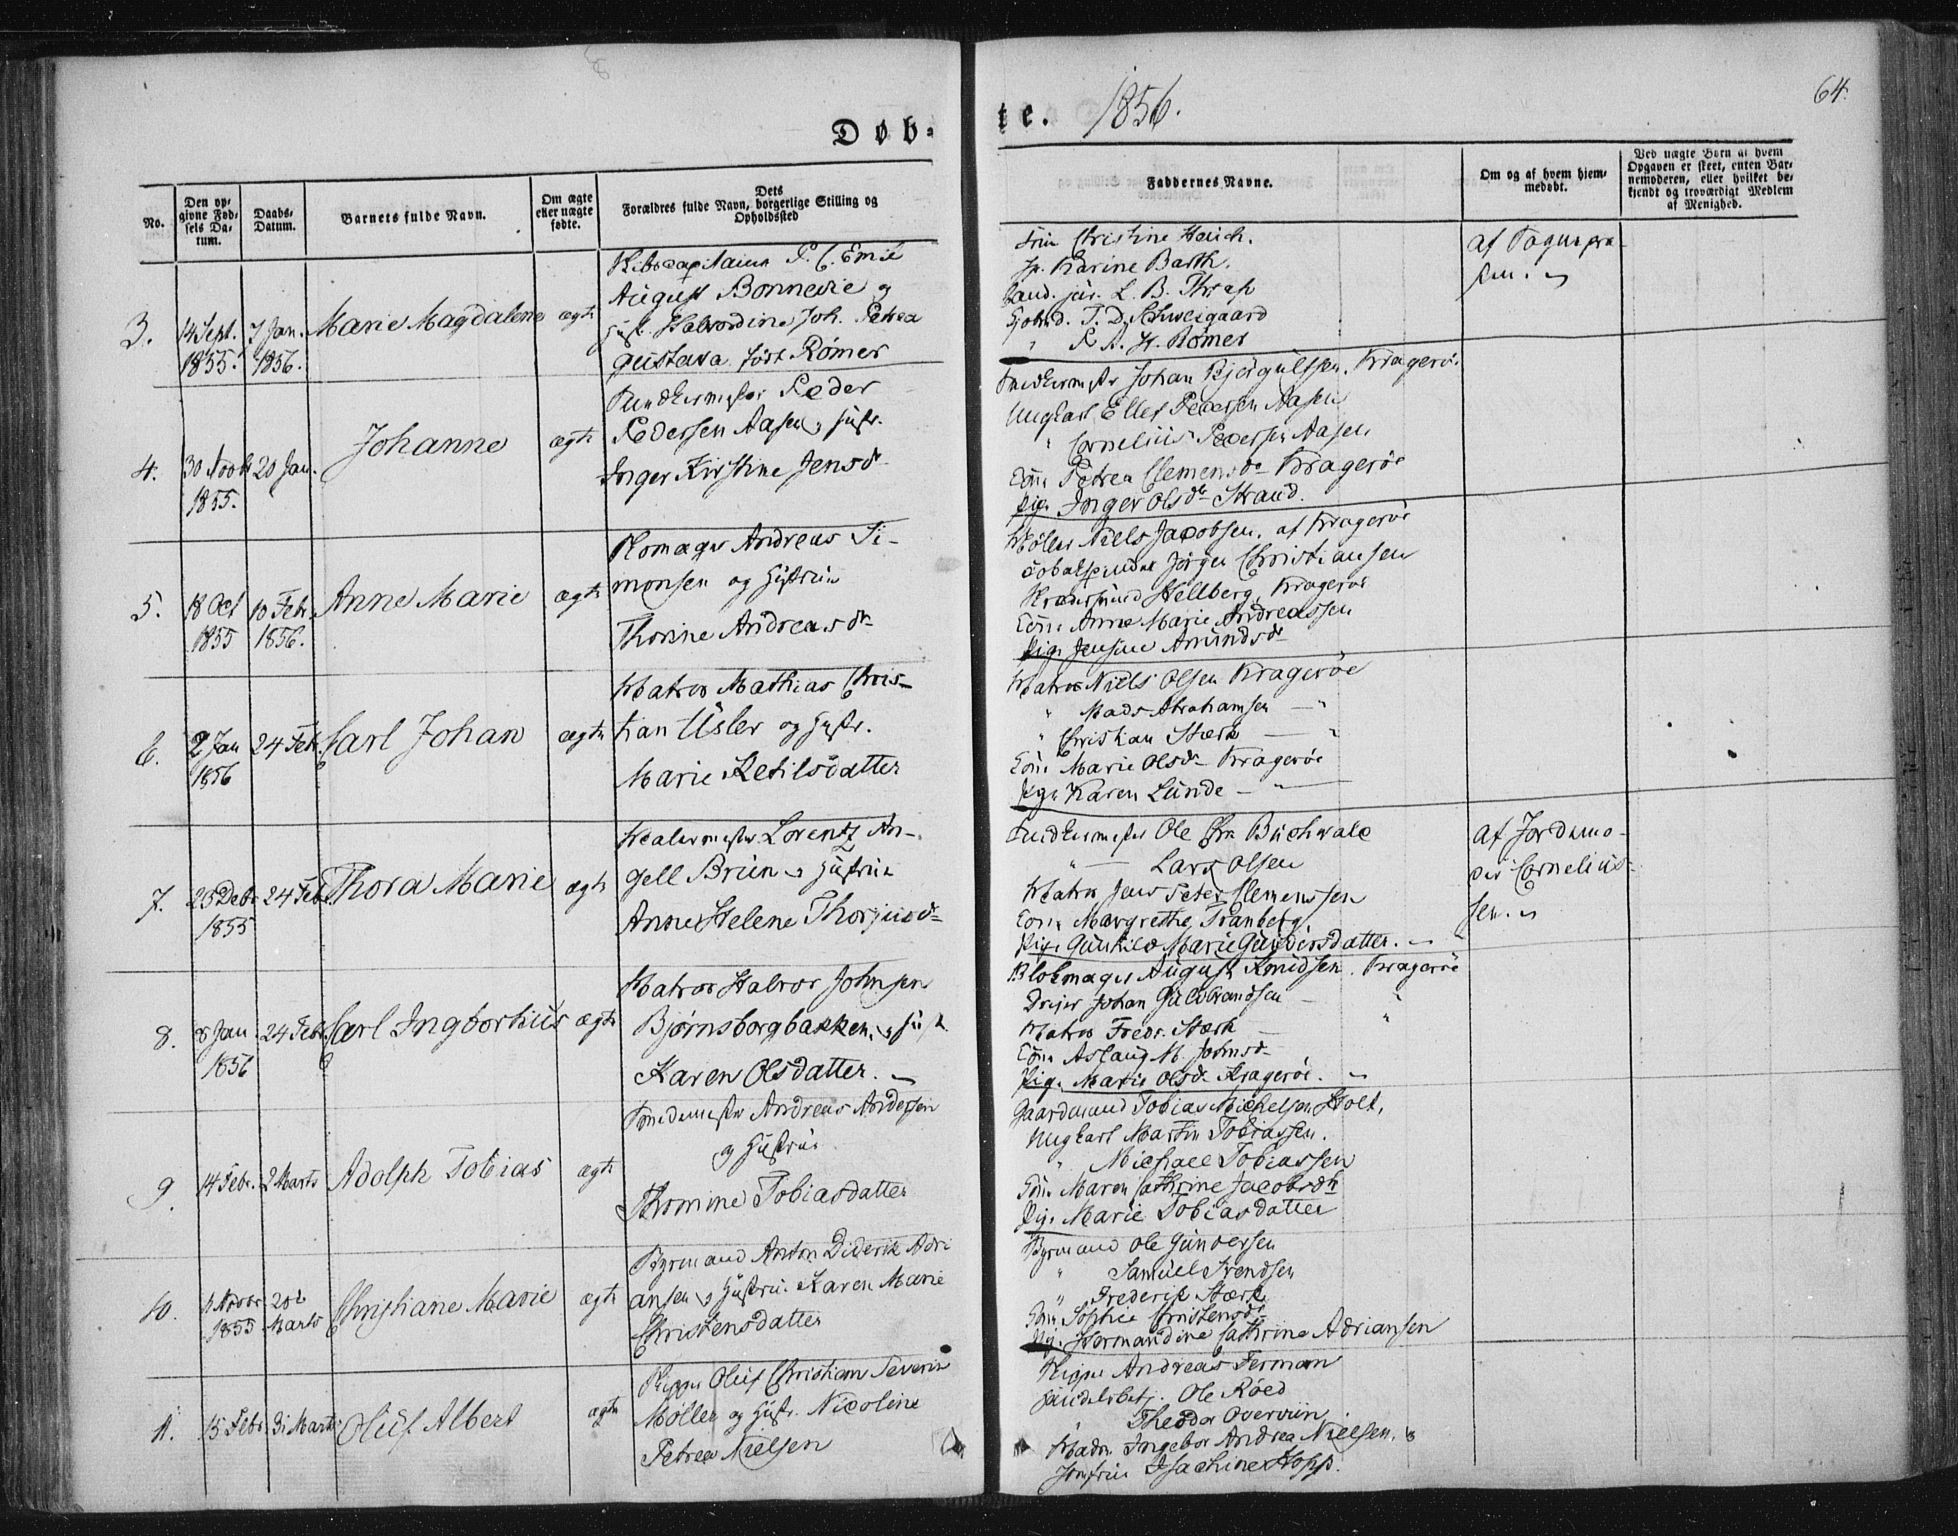 Døb-
te. 1856.
64.
No.
Den op-
givne Fød-
sels Da-
tum.
Daabs-
Datum.
Barnets fulde Navn.
Om ægte
eller uægte
fødte.
Dets
Forældres fulde Navn, borgerlige Stilling og
Opholdssted
Faddernes Navne.
Om og af hvem hjem-
medøbt.
Ved uægte Børn af hvem
Opgaven er skeet, enten Bar-
nemoderen, eller hvilket be-
kjendt og troværdigt Medlem
af Menighed.
3. 14 Sept. 7 Jan. Marie Magdalene ægte
1855. 1856.
P. C. Emil
August Bonnevie og
Halvordine Joh. Petrea
Gustava født Rømer
Christine Heuch.
Fr. Karine Barth.
Cand. jur. L. B. Thrap
T. D. Schweigaard
" P. A. H. Rømer
4. 30 Novbr 20 Jan. Johanne ægte
1855.
Peder
Pedersen Aasen og Hustr.
Inger Kirstine Jensdr
Johan Bjørgulfsen. Kragerøe
Ungkarl Ellef Pedersen Aasen
" Cornelius Pedersen Aasen
Kone Petrea Clemensdr Kragerøe
Pige Inger Olsdr Strand.
5. 18 Oct 10 Febr. Anne Marie ægte
1855 1856.
Andreas Si-
monsen og Hustrue
Thorine Andreasdr
Møller Niels Jacobsen. af Kragerøe
Jørgen Christiansen
Hellberg, Kragerøe
Kone Anne Marie Andreassen
Pige Jensine Amundsdr
6. 2 Jan 24 Febr. Carl Johan ægte
1856
Matros Mathias Chris-
tian Usler og Hustr.
Marie Ketilsdatter
Matros Niels Olsen Kragerøe
" Mads Abrahamsen — "
" Christian Stærk — "
Kone Marie Olsdr Kragerøe
Pige Karen Lunde — "
7. 24 Febr. Thora Marie ægte
1855
Malermester Lorentz An-
gell Bruun og Hustrue
Anne Helene Thorjusdr
Ole Chr. Buchwald
" — Lars Olsen
Matros Jens Peter Clemenssen
Kone Margrethe Tranberg
Pige Gunhild Marie Gundersdatter. —
af Jordemo-
der Cornelius-
sen.
8. 8 Jan. 24 Febr. Carl Ingbortius ægte
1856
Matros Halvor Johnsen
Bjørnsborgbakken, og Hust.
Karen Olsdatter. —
Blokmager August Knudsen. Kragerøe
Dreier Johan Gulbrandsen — "
Matros Fredr. Stærk — "
Kone Aslaug M. Johnsdr
Pige Marie Olsdr Kragerøe. —
9. 14 Febr. 2 Marts Adolph Tobias ægte
Andreas Andersen
og Hustrue
Thomine Tobiasdatter
Gaardmand Tobias Michelsen Holt,
Ungkarl Martin Tobiassen.
" Michael Tobiassen
Kone Maren Cathrine Jacobsdtr
Pige Marie Tobiasdatter
10. 6 Novbr Christiane Marie ægte
1855 Marts
Byemand Anton Diderik Adri
ansen og Hustrue Karen Marie
Christensdatter
Byemand Ole Gundersen
" Samuel Svendsen
" Frederik Stærk
Kone Sophie Christensdr
Pige Hermandine Cathrine Adriansen
11. 15 Febr. 31 Marts Oluf Albert ægte
Skipper Oluf Christian Severin
Møller og Hustr. Nicoline
Petrea Nielsen
Skipper Andreas Ferman
Handelsbetj. Ole Røed
Theodor Overvien
Madm. Ingebor Andrea Nielsen. og
Jomfrue Isachine Hopp.